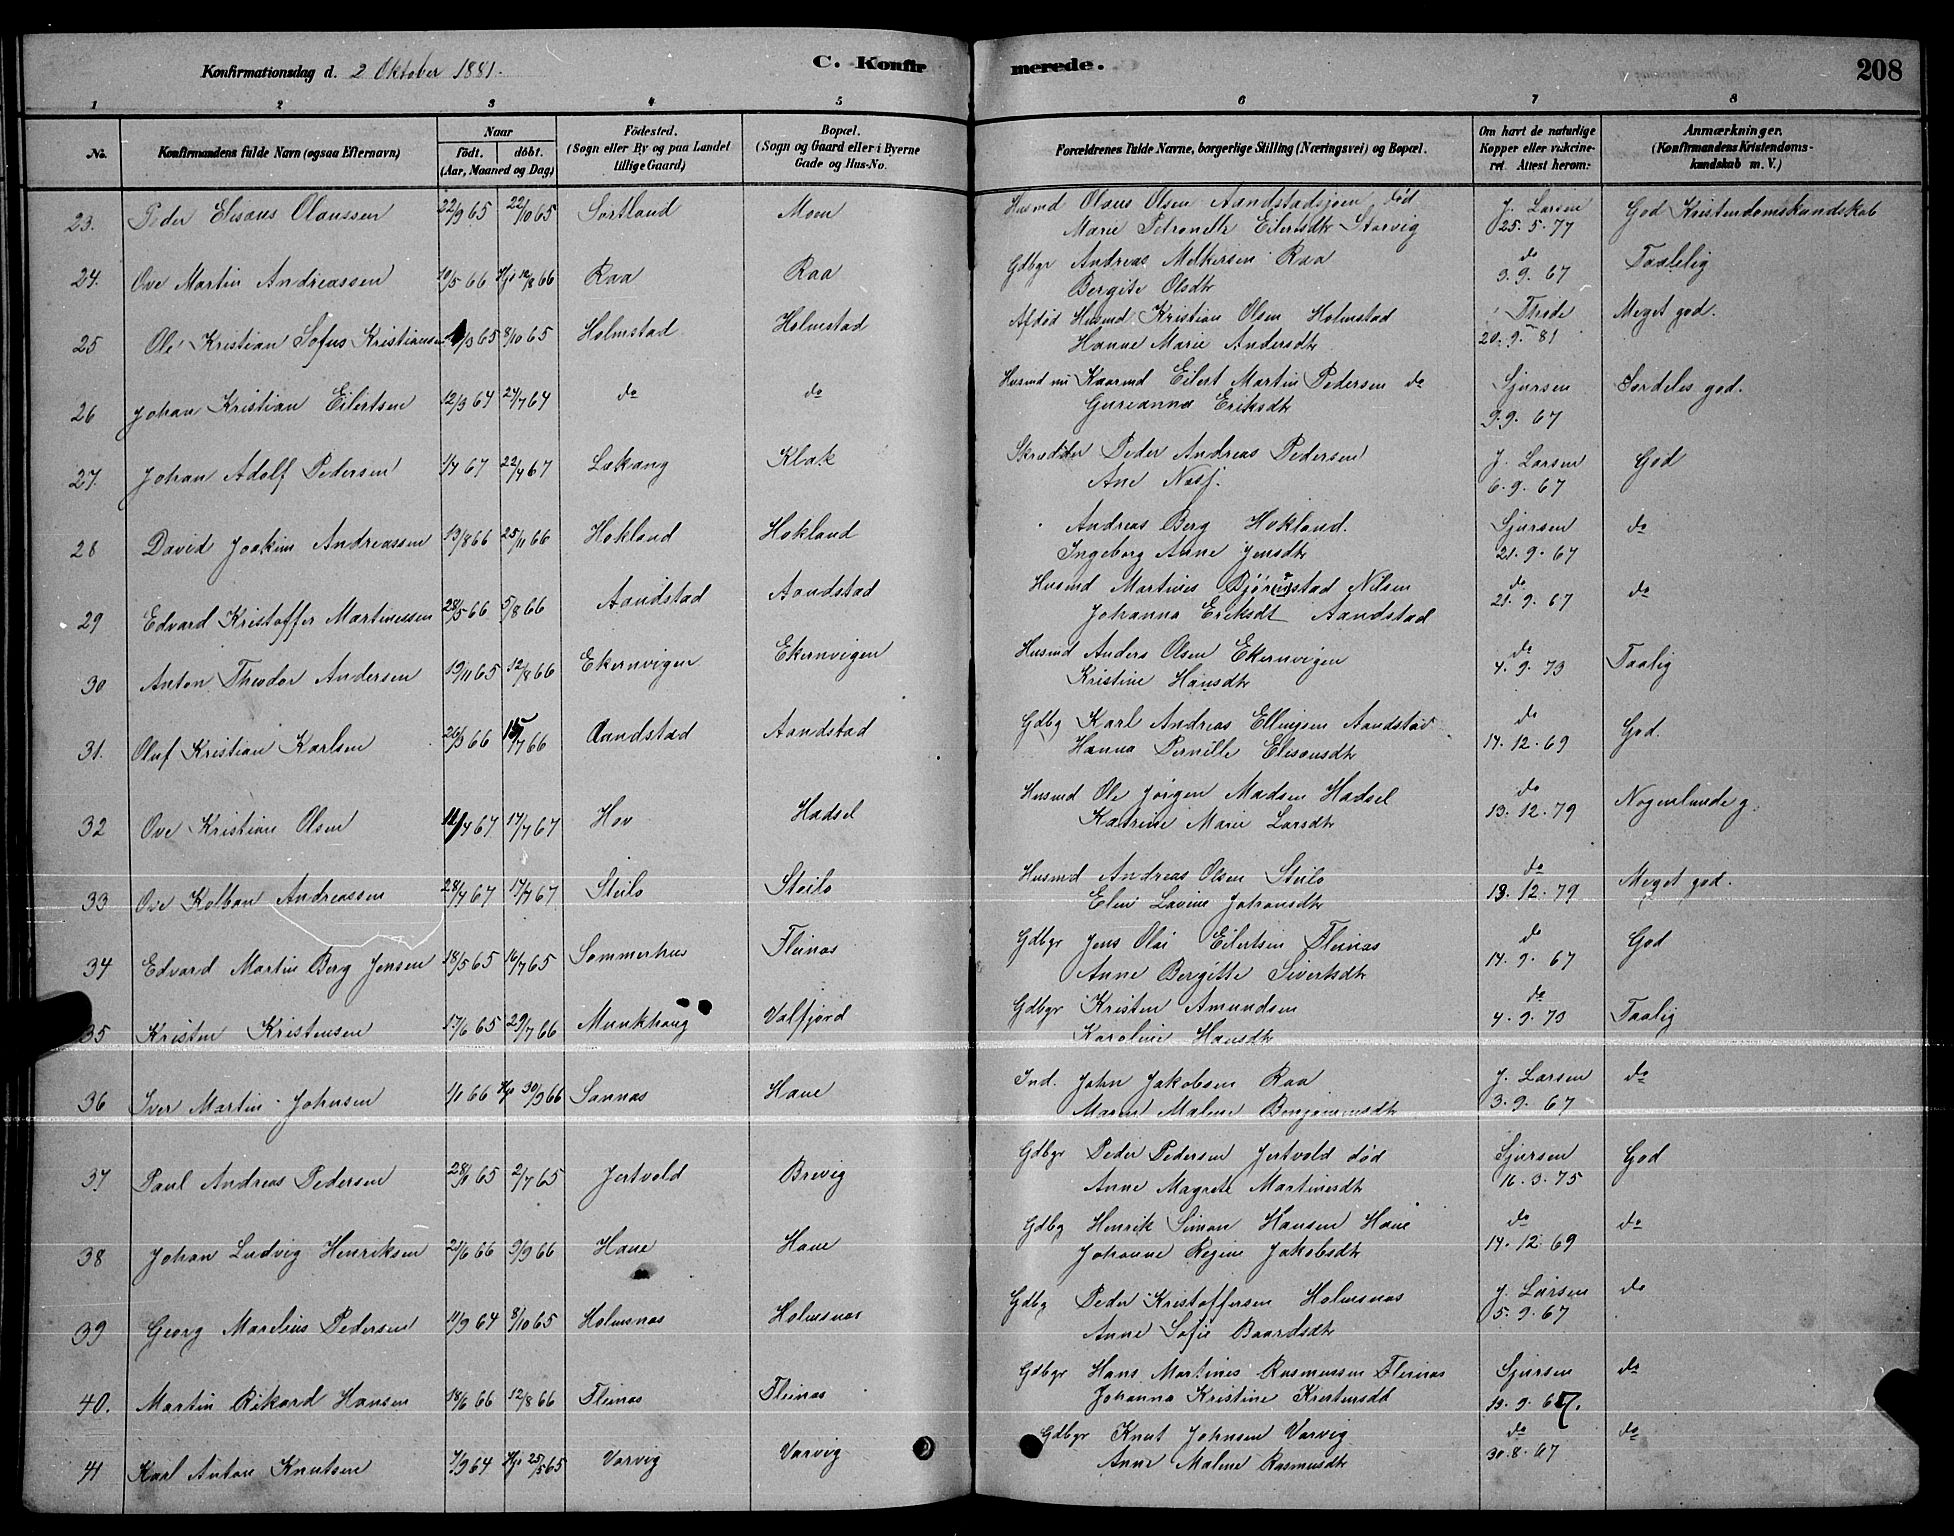 Konfirmationsdag d. 2 Oktober 1881.
C. Konfirmerede.
208
1 2 3 4 5 6 7 8
No.
Konfirmandens fulde Navn (ogsaa Efternavn)
Naar
födt. döbt.
(Aar, Maaned og Dag)
Födested.
(Sogn eller By og paa Landet
tillige Gaard)
Bopæl.
(Sogn og Gaard eller i Byerne
Gade og Hus-No.
Forældrenes fulde Navne, borgerlige Stilling (Næringsvei) og Bopæl.
Om havt de naturlige
Kopper eller vakcine-
ret. Attest herom:
Anmærkninger.
(Konfirmandens Kristendoms-
kundskab m. V.)
23. Peder Elisæus Olaussen 22/9 65 22/10 65 Sortland Moen Husmd Olaus Olsen Aandstadsjøen, død J. Larsen God Kristendomskundskab
Marie Petronelle Eilertsdtr Storvig 25.5.77
24. Ove Martin Andreassen 10/5 66 Hjd 12/8 66 Raa Raa Gdbgr Andreas Melkersen Raa do Taalelig
Bergite Olsdtr 3.9.67
25 Ole Kristian Sofus Kristiansen /3 65 8/10 65 Holmstad Holmstad Afdød Husmd. Kristian Olsen Holmstad Thode Meget god.
Hanne Marie Andersdtr 20.9.81
26 Johan Kristian Eilertsen 12/3 64 24/7 64 do do Husmd nu Kaarmd Eilert Martin Pedersen do Sjursen Særdeles god.
Gurianna Eriksdtr 9.9.67
27. Johan Adolf Pedersen 1/4 67 22/4 67 Lakang Klak Skrædder Peder Andreas Pedersen J. Larsen God
Ane Næsj. 6.9.67
28 David Joakim Andreassen 13/8 66 25/11 66 Hokland Hokland Andreas Berg Hokland. Sjursen do
Ingeborg Anne Jensdtr 21.9.67
29 Edvard Kristoffer Martinessen 28/5 66 5/8 66 Aandstad Aandstad Husmd Martines Bjørnstad Nilsen do do
Johanna Eriksdt Aandstad 21.9.67
30 Anton Theodor Andersen 19/11 65 12/8 66 Ekernvigen Ekernvigen Husmd Anders Olsen Ekernvigen do Taalig
Kristine Hansdtr 4.9.73
31. Oluf Kristian Karlsen 26/3 66 15/7 66 Aandstad Aandstad Gdbg Karl Andreas Ellingsen Aandstad do God.
Hanna Pernille Elisæusdtr 14.12.69
32 Ove Kristian Olsen 11/4 67 17/7 67 Hov Hadsel Husmd Ole Jörgen Madsen Hadsel do Nogenlunde g.
Katrine Marie Larsdtr 13.12.79
33 Ove Kolban Andreassen 28/4 67 17/7 67 Steilo Steilo Husmd Andreas Olsen Steilo do Meget god.
Elen Lavine Johansdtr 13.12.79
34 Edvard Martin Berg Jensen 18/5 65 16/7 65 Sommerhus Fleinæs Gdbgr Jens Olai Eilertsen Fleinæs do God
Anne Bergitte Sivertsdtr 14.9.67
35 Kristen Kristensen 17/6 65 29/7 66 Munkhaug Valfjord Gdbgr Kristen Amundsen do Taalig
Karoline Hansdtr 4.9.73
36 Iver Martin Johnsen 1/1 66 Hjd 30/9 66 Sannæs Haue Ind. John Jakobsen Raa J. Larsen do
Maren Malene Benjaminsdtr 3.9.67
37 Paul Andreas Pedersen 28/1 65 2/7 65 Jertvold Brevig Gdbgr Peder Pedersen Jertvold død Sjursen God
Anne Magrete Martinesdtr 16.3.75
38 Johan Ludvig Henriksen 21/6 66 9/9 66 Haue Haue Gdbg Henrik Simon Hansen Haue do do
Johanne Regine Jakobsdtr 14.12.69
39 Georg Marelius Pedersen 11/9 64 8/10 65 Holmsnæs Holmsnæs Gdbg Peder Kristoffersen Holmsnæs J. Larsen do
Anne Sofie Baardsdtr 5.9.67
40. Martin Rikard Hansen 18/6 66 12/8 66 Fleinæs Fleinæs Gdbgr Hans Martines Rasmussen Fleinæs Sjursen do
Johanna Kristine Kristensdtr 13.9.67.
41 Karl Anton Knutsen 7/9 64 Hjd 25/5 65 Varvig Varvig Gdbgr Knut Johnsen Varvig do do
Anne Malene Rasmusdtr 30.8.67